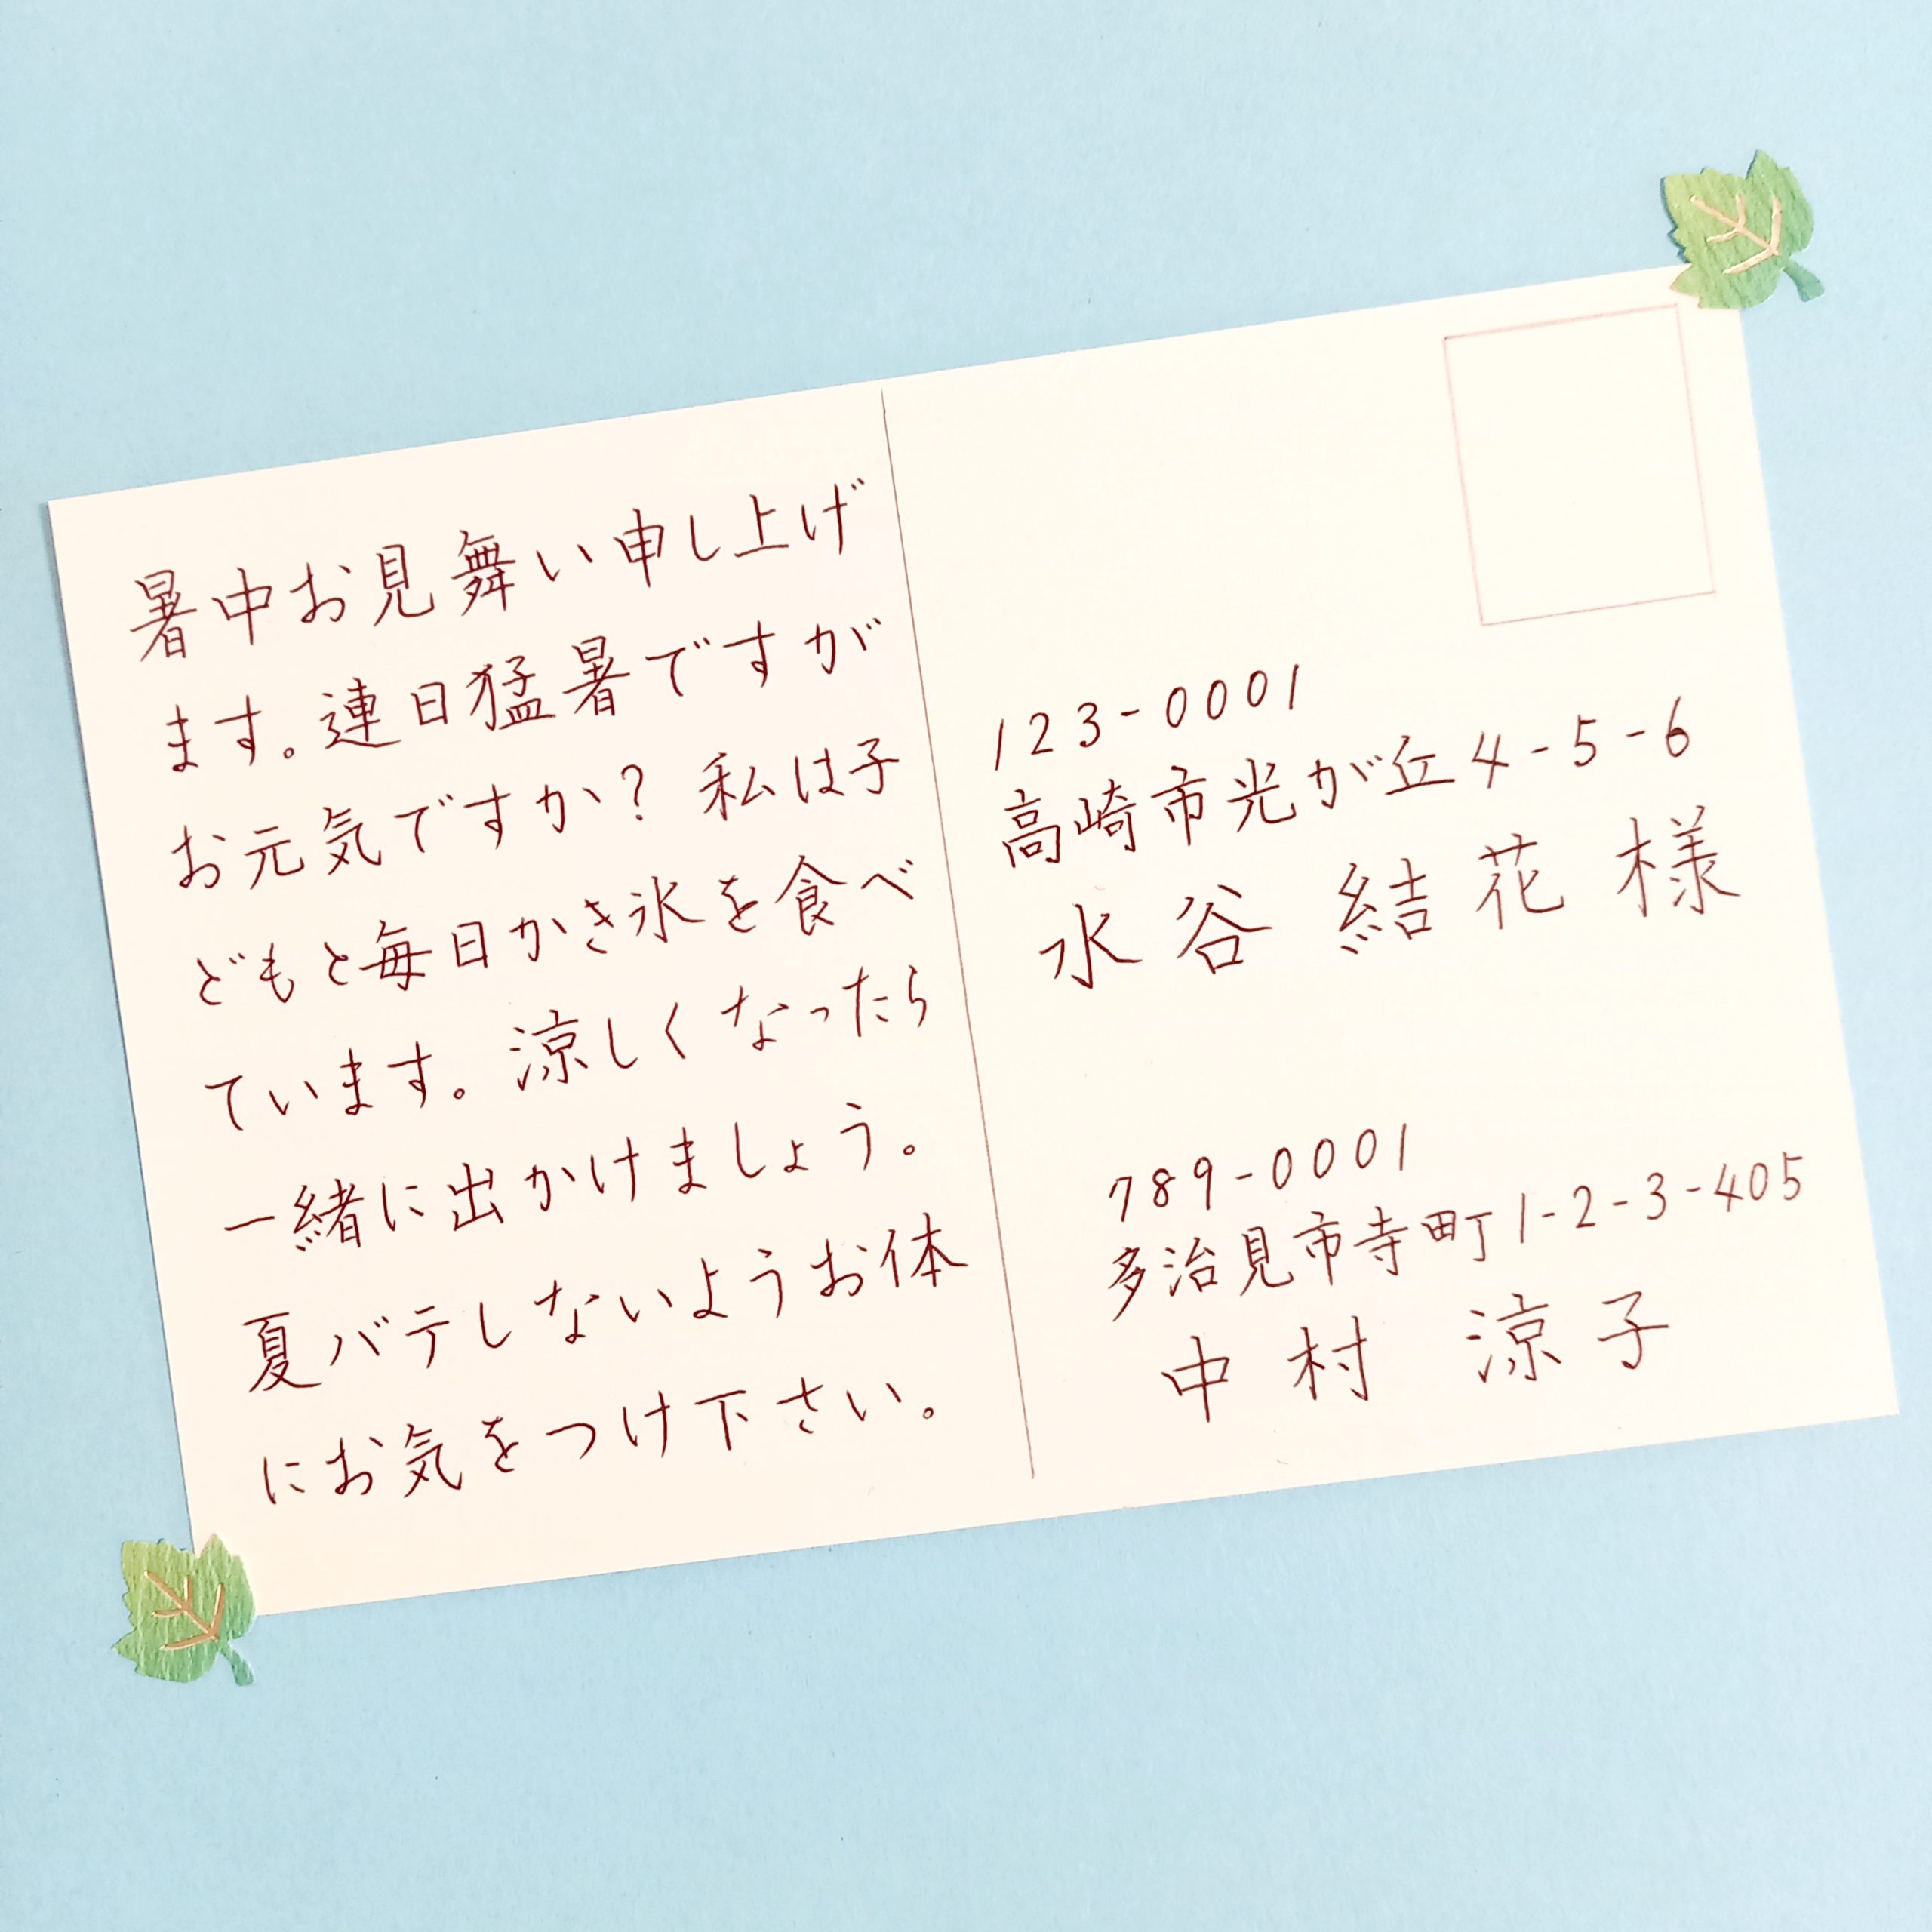 暑中お見舞い申し上げ
ます。連日猛暑ですが
お元気ですか？ 私は子
どもと毎日かき氷を食べ
ています。涼しくなったら
一緒に出かけましょう。
夏バテしないようお体
にお気をつけ下さい。
123-0001
高崎市光が丘4-5-6
水谷 結花 様
789-0001
多治見市寺町1-2-3-405
中村 涼子